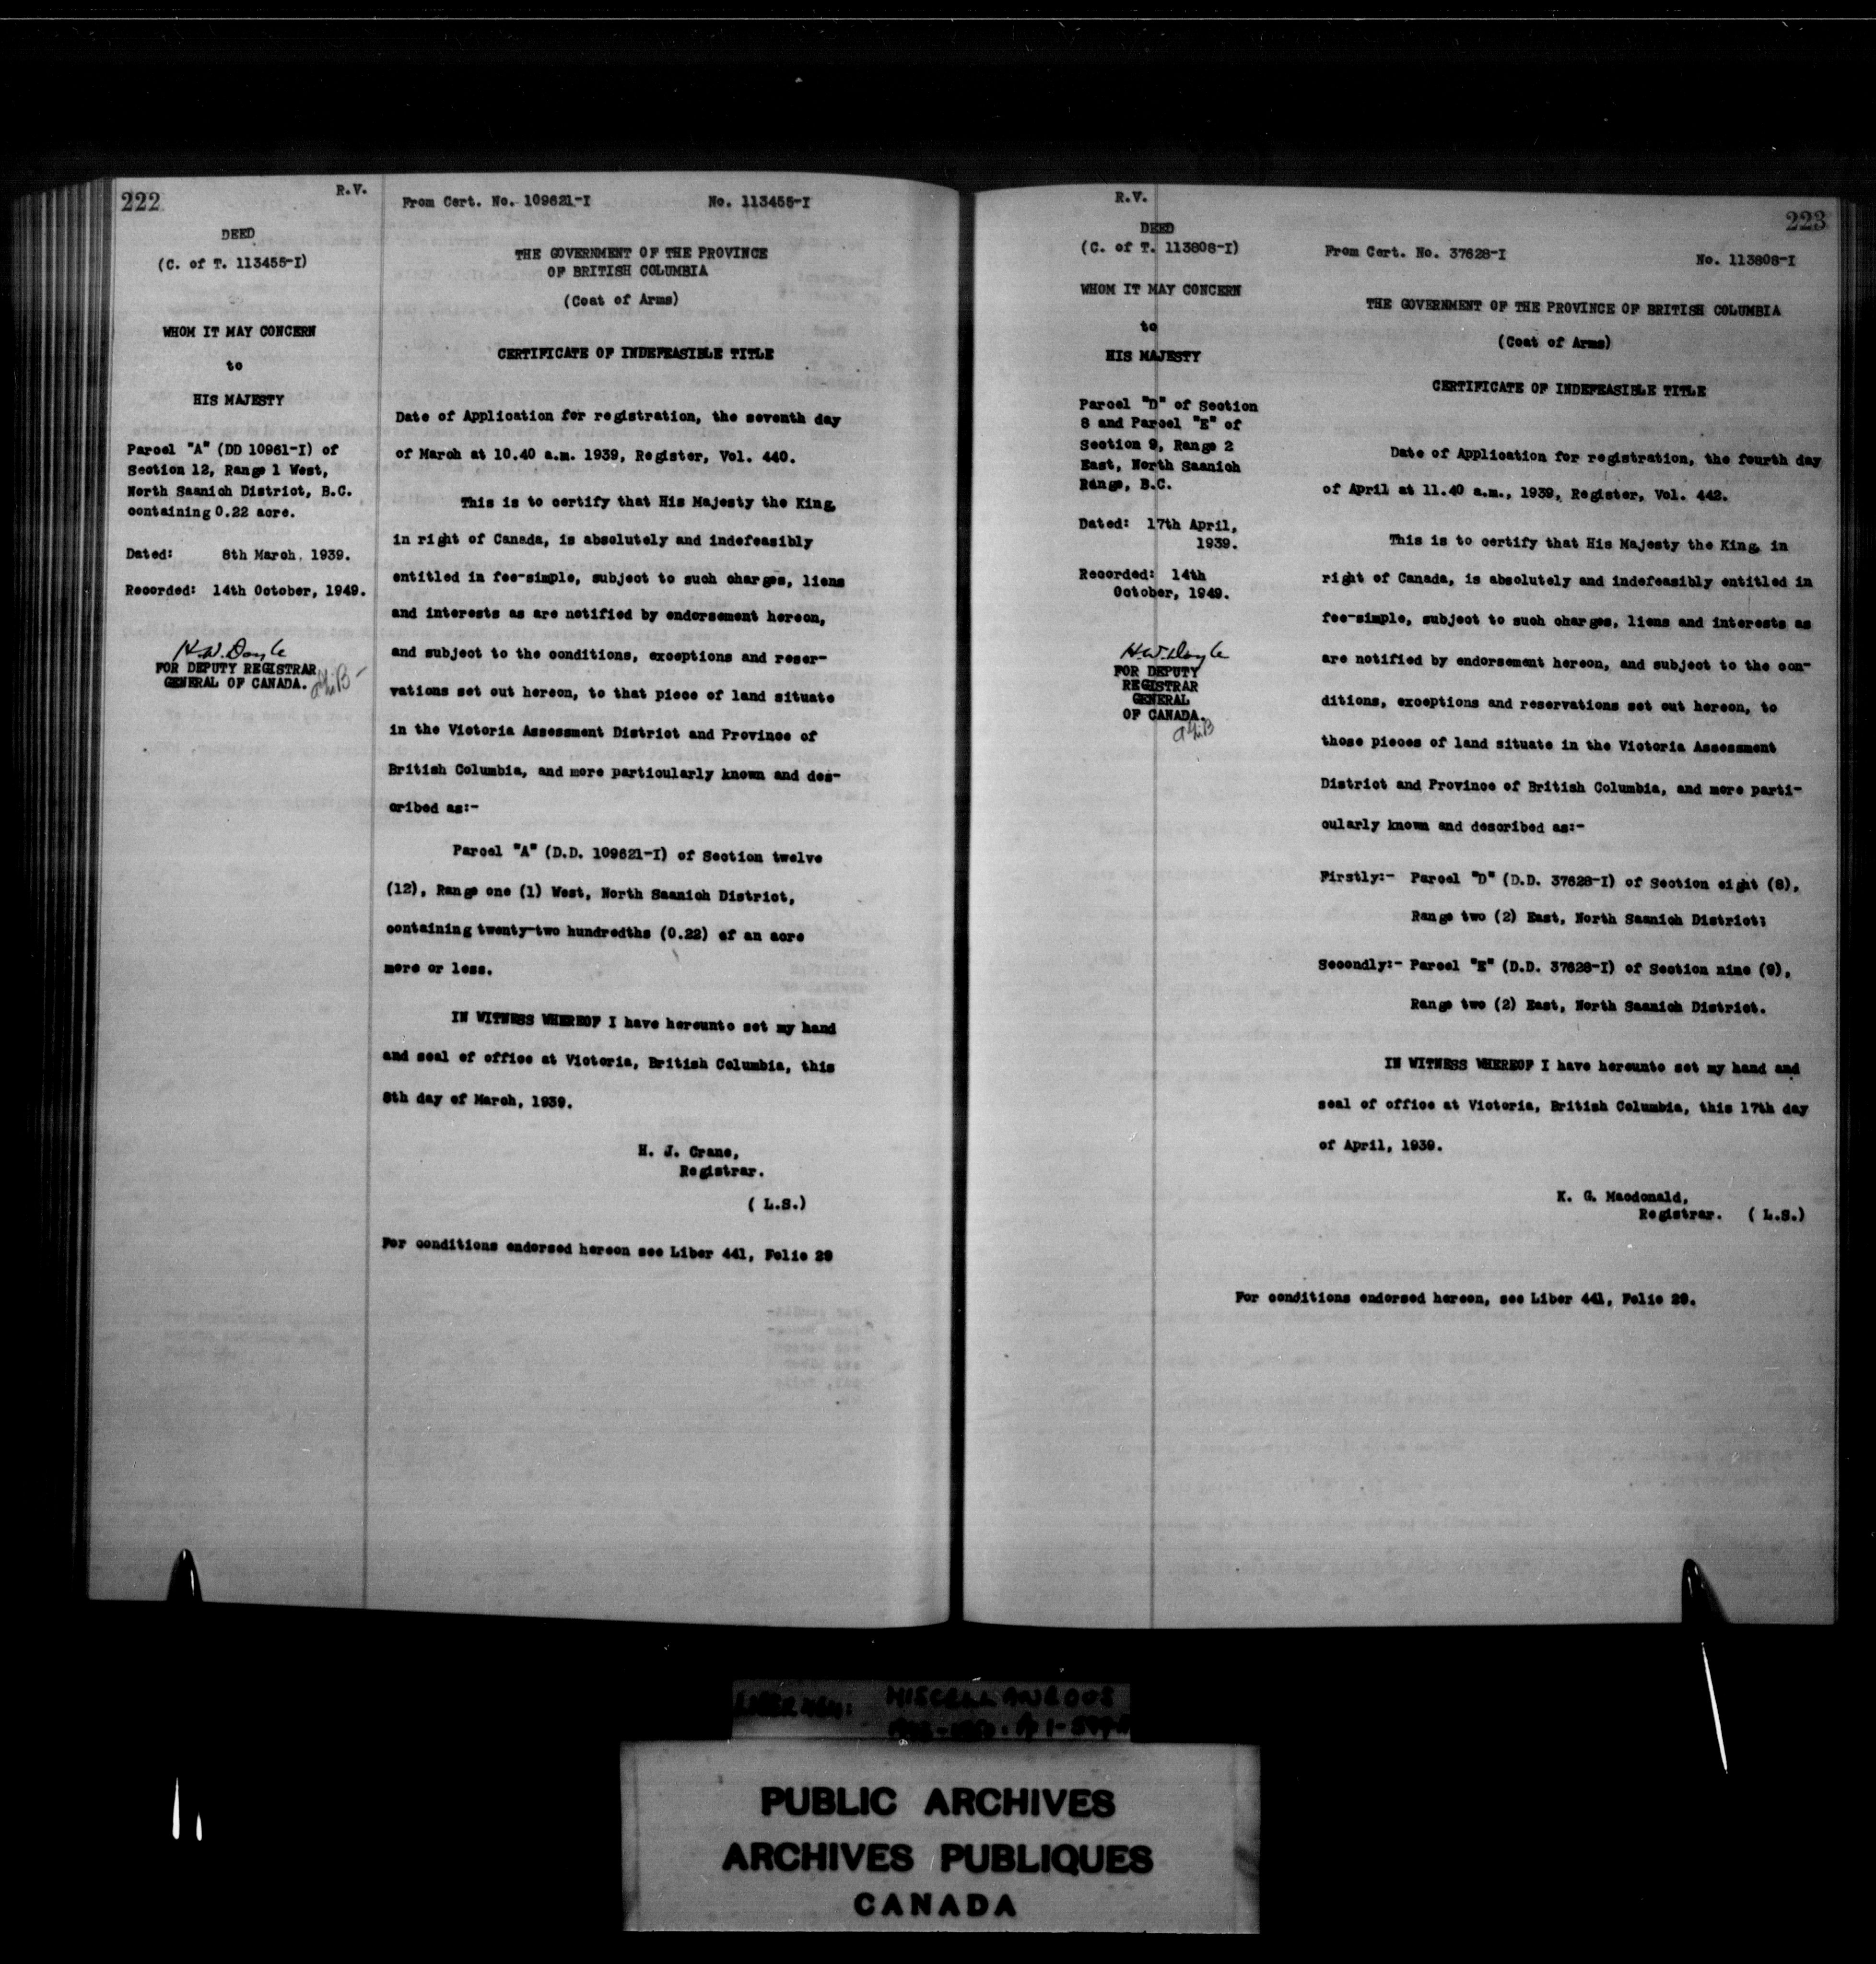 222
R.V.
DEED
(C. of T. 113455-I)
WHOM IT MAY CONCERN
to
HIS MAJESTY
Parcel "A" (DD 10961-I) of
Section 12, Range 1 West,
North Saanich District, B.C.
containing 0.22 acre.
Dated: 8th March, 1939.
Recorded: 14th October, 1949.
H.W. Doyle
FOR DEPUTY REGISTRAR
GENERAL OF CANADA.
From Cert. No. 109621-I No. 113455-I
THE GOVERNMENT OF THE PROVINCE
OF BRITISH COLUMBIA
(Coat of Arms)
CERTIFICATE OF INDEFEASIBLE TITLE
Date of Application for registration, the seventh day
of March at 10.40 a.m. 1939, Register, Vol. 440.
This is to certify that His Majesty the King,
in right of Canada, is absolutely and indefeasibly
entitled in fee-simple, subject to such charges, liens
and interests as are notified by endorsement hereon,
and subject to the conditions, exceptions and reser-
vations set out hereon, to that piece of land situate
in the Victoria Assessment District and Province of
British Columbia, and more particularly known and des-
cribed as:-
Parcel "A" (D.D. 109621-I) of Section twelve
(12), Range one (1) West, North Saanich District,
containing twenty-two hundredths (0.22) of an acre
more or less.
IN WITNESS WHEREOF I have hereunto set my hand
and seal of office at Victoria, British Columbia, this
8th day of March, 1939.
H. J. Crane,
Registrar.
( L.S.)
For conditions endorsed hereon see Liber 441, Folio 29
R.V.
223
DEED
(C. of T. 113808-I)
WHOM IT MAY CONCERN
to
HIS MAJESTY
Parcel "D" of Section
8 and Parcel "E" of
Section 9, Range 2
East, North Saanich
Range, B.C.
Dated: 17th April,
1939.
Recorded: 14th
October, 1949.
H.W. Doyle
FOR DEPUTY
REGISTRAR
GENERAL
OF CANADA.
From Cert. No. 37628-I No. 113808-I
THE GOVERNMENT OF THE PROVINCE OF BRITISH COLUMBIA
(Coat of Arms)
CERTIFICATE OF INDEFEASIBLE TITLE
Date of Application for registration, the fourth day
of April at 11.40 a.m., 1939, Register, Vol. 442.
This is to certify that His Majesty the King, in
right of Canada, is absolutely and indefeasibly entitled in
fee-simple, subject to such charges, liens and interests as
are notified by endorsement hereon, and subject to the con-
ditions, exceptions and reservations set out hereon, to
those pieces of land situate in the Victoria Assessment
District and Province of British Columbia, and more parti-
cularly known and described as:-
Firstly:- Parcel "D" (D.D. 37628-I) of Section eight (8),
Range two (2) East, North Saanich District;
Secondly:- Parcel "E" (D.D. 37628-I) of Section nine (9),
Range two (2) East, North Saanich District.
IN WITNESS WHEREOF I have hereunto set my hand and
seal of office at Victoria, British Columbia, this 17th day
of April, 1939.
K. G. Macdonald,
Registrar. ( L.S.)
For conditions endorsed hereon, see Liber 441, Folio 29.
MISCELLANEOUS
PUBLIC ARCHIVES
ARCHIVES PUBLIQUES
CANADA